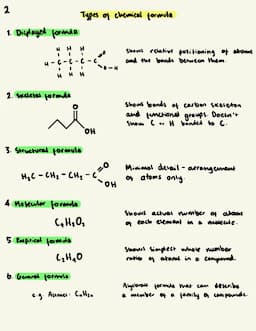 2
Types of chemical formula
1. Displayed formula
H H H
H-C-C-C-C
O
O-H
H H H
Shows relative positioning of atoms
and the bonds between them.
2. Skeletal formula
O
OH
Shows bonds of carbon skeleton
and functional groups. Doesn't
show C or H bonded to C.
3. Structural formula
H₃C - CH₂ - CH₂ - C
O
OH
Minimal detail - arrangement
of atoms only.
4. Molecular formula
C₄H₈O₂
Shows actual number of atoms
of each element in a molecule.
5. Empirical formula
C₂H₄O
Shows simplest whole number
ratio of atoms in a compound.
6. General formula
e.g. Alkenes: CₙH₂ₙ
Algebraic formula that can describe
a member of a family of compounds.